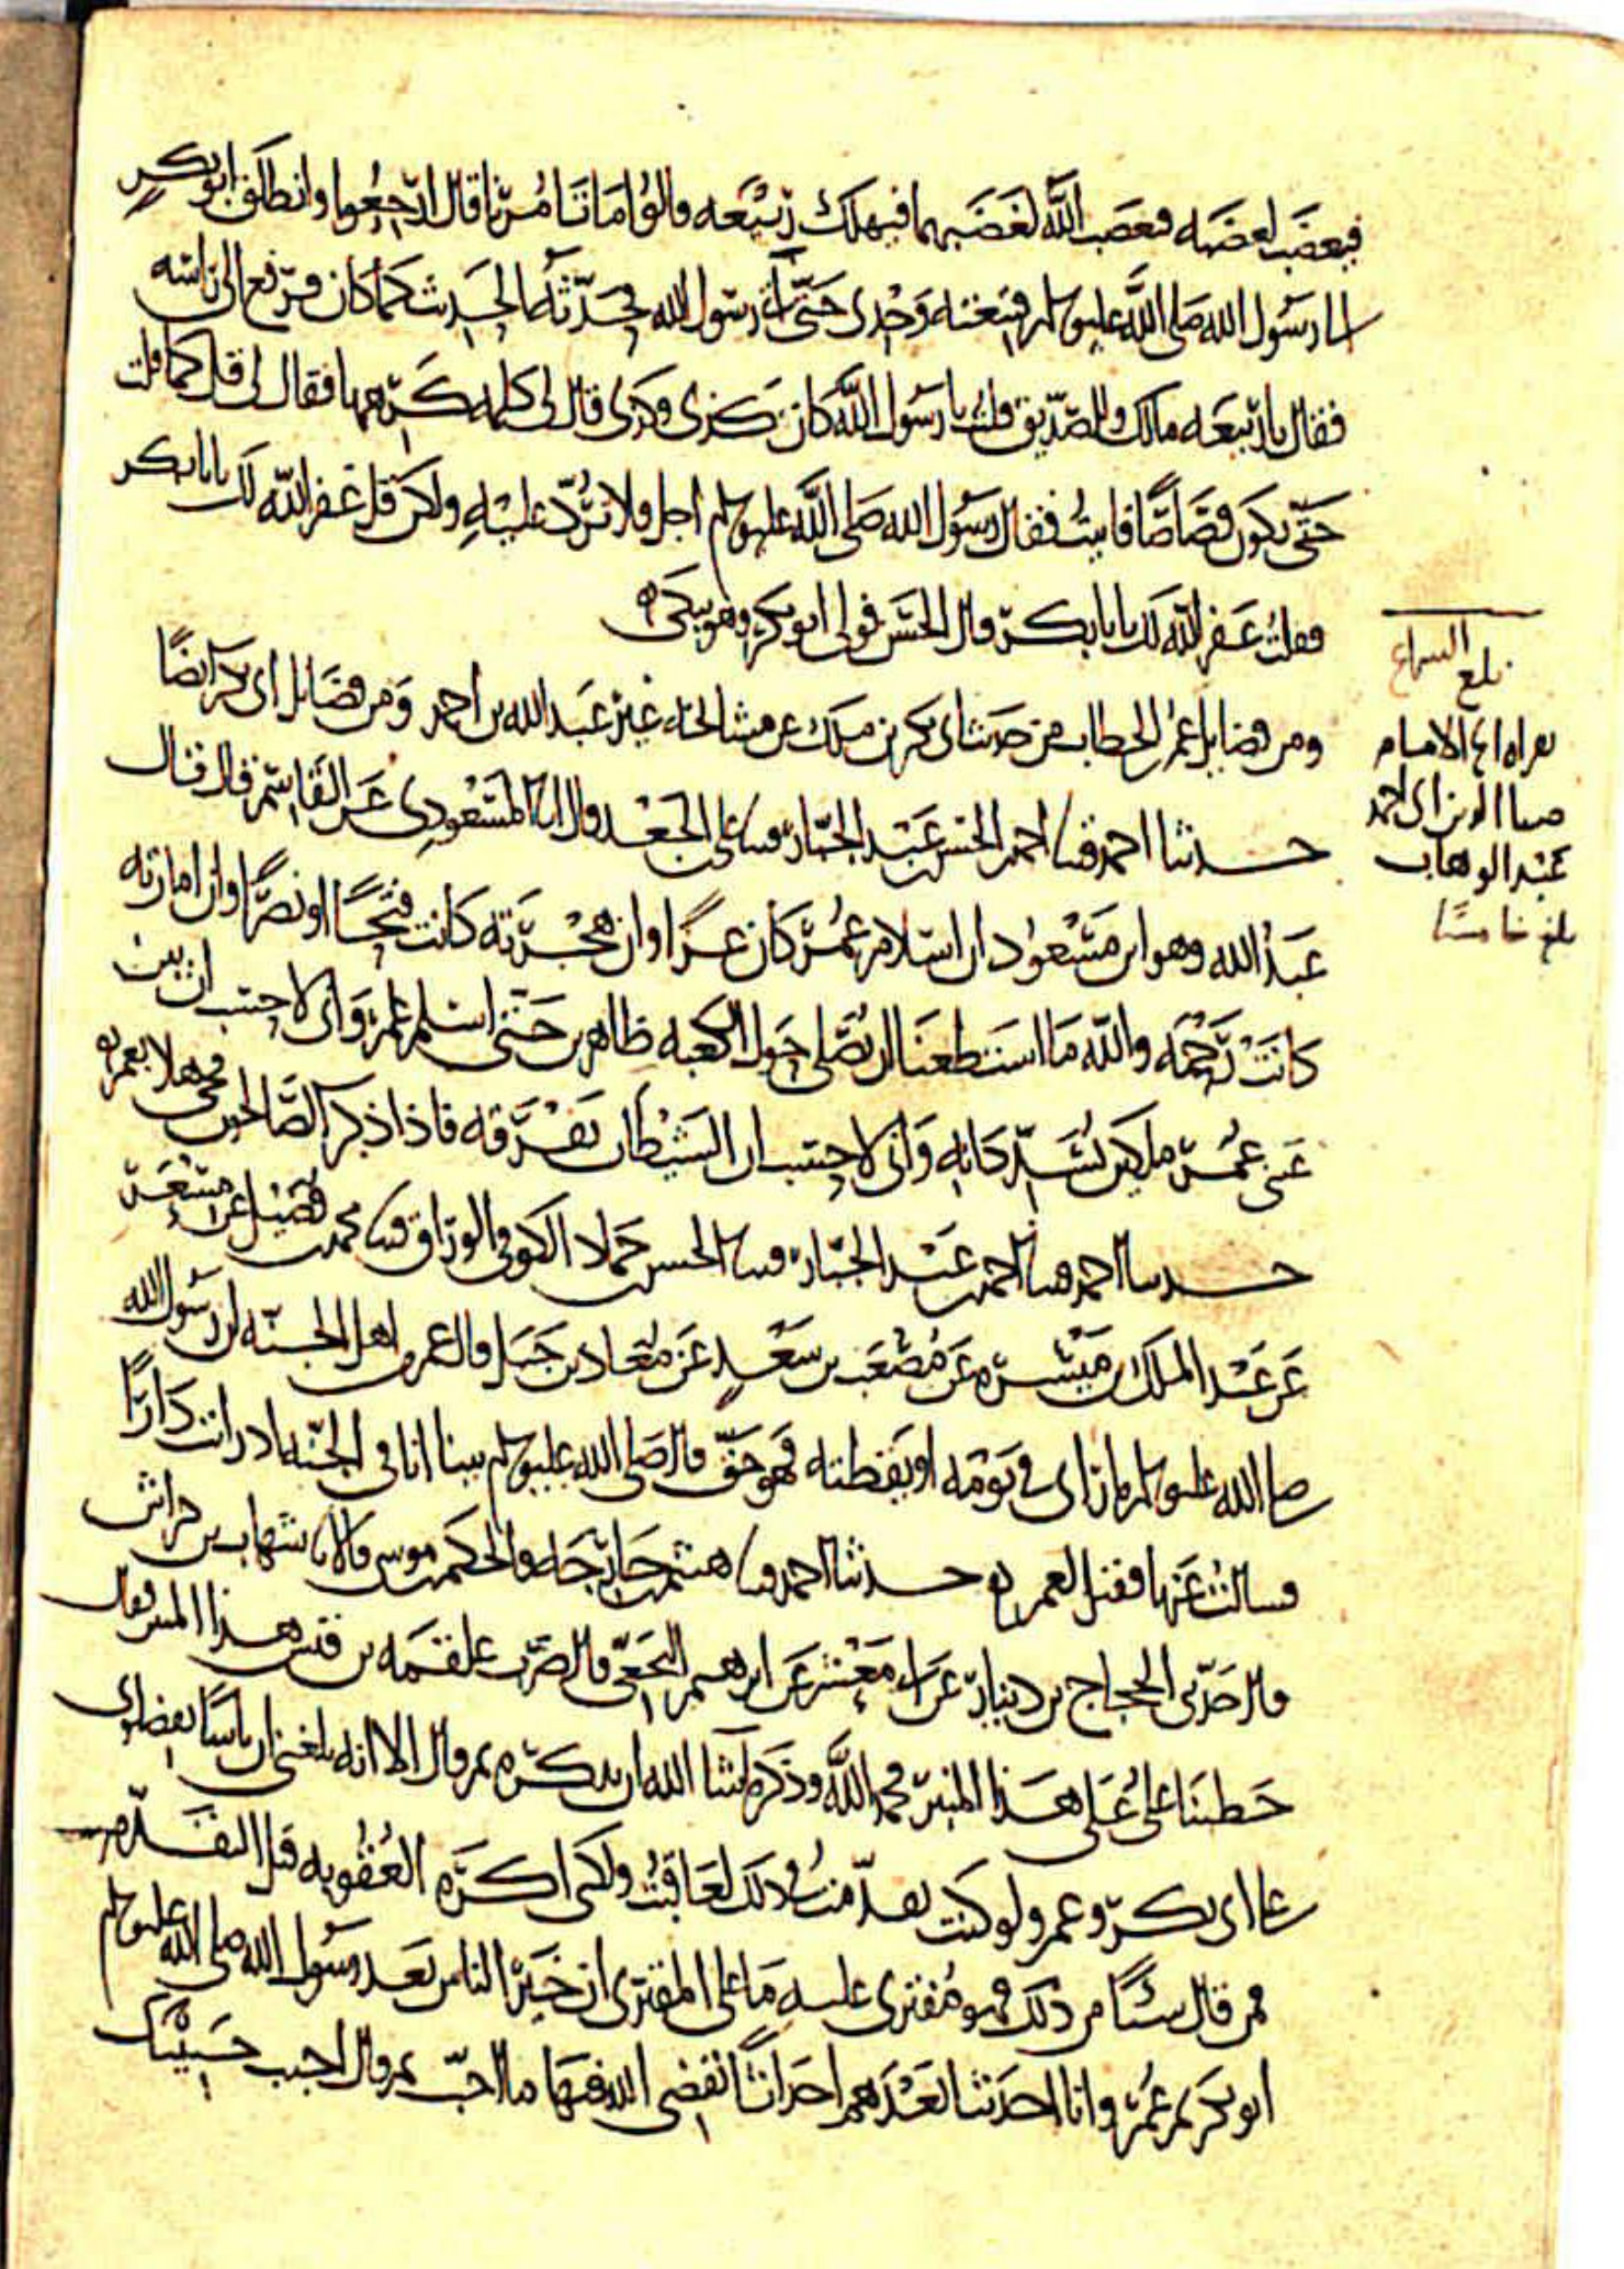 فيغضب لغضبه فيغضب الله لغضبهما فيهلك ربيعه قالوا ما تامرنا قال ارجعوا وانطلق ابو بكر
الى رسول الله صلى الله عليه وسلم فتبعته وحدى حتى اتى رسول الله فحدثه الحديث كما كان فرفع الى راسه
فقال يا ربيعه مالك والصديق قلت يا رسول الله كان كذى وكذى قال لى كلمه كرهها فقال لى قل كما قلت
حتى يكون قصاصا فابيت فقال رسول الله صلى الله عليه وسلم اجل ولا ترد عليه ولكن قل غفر الله لك يا ابا بكر
فقلت غفر الله لك يا ابا بكر قال الحسن فولى ابو بكر وهو يبكى
ومن فضايل عمر بن الخطاب من حديث ابى بكر بن ملك عن مشايخه غير عبد الله بن احمد ومن فضايل ابى بكر ايضا
حدثنا احمد قثنا احمد بن الحسن بن عبد الجبار قثنا على بن الجعد قال انا المسعودى عن القاسم قال قال
عبد الله وهو ابن مسعود ان اسلام عمر كان عزا وان هجرته كانت فتحا او نصرا وان امارته
كانت رحمه والله ما استطعنا ان نصلى حول الكعبه ظاهرين حتى اسلم عمر وانى لاحسب ان بين
عينى عمر ملكين يسددانه وانى لاحسب ان الشيطان يفرقه فاذا ذكر الصالحون فحى هلا بعمر
حدثنا احمد قثنا احمد بن عبد الجبار قثنا الحسن بن حماد الكوفى الوراق قثنا محمد بن فضيل عن مسعر
عن عبد الملك بن ميسره عن مصعب بن سعد عن معاذ بن جبل قال عمر من اهل الجنه ان رسول الله
صلى الله عليه وسلم ما راى فى نومه او يقظته فهو حق قال صلى الله عليه وسلم بينا انا فى الجنه اذ رايت دارا
فسالت عنها فقيل لعمر حدثنا احمد قثنا هيثم بن خارجه والحكم بن موسى قالا نا شهاب بن خراش
قال حدثنى الحجاج بن دينار عن ابى معشر عن ابرهيم النخعى قال ضرب علقمه بن قيس هذا المنبر وقال
خطبنا على على هذا المنبر فحمد الله وذكره ما شا الله ان يذكره ثم قال الا انه بلغنى ان ناسا يفضلونى
على ابى بكر وعمر ولو كنت تقدمت فى ذلك لعاقبت ولكنى اكره العقوبه قبل التقدم
فمن قال شيئا من ذلك فهو مفترى عليه ما على المفترى ان خير الناس بعد رسول الله صلى الله عليه وسلم
ابو بكر ثم عمر وانا احدثنا بعدهم احداثا يقضى الله فيها ما احب ثم قال احبب حبيبك
بلغ السماع
بقراه الامام
عبد الوهاب
بلغ خامسا